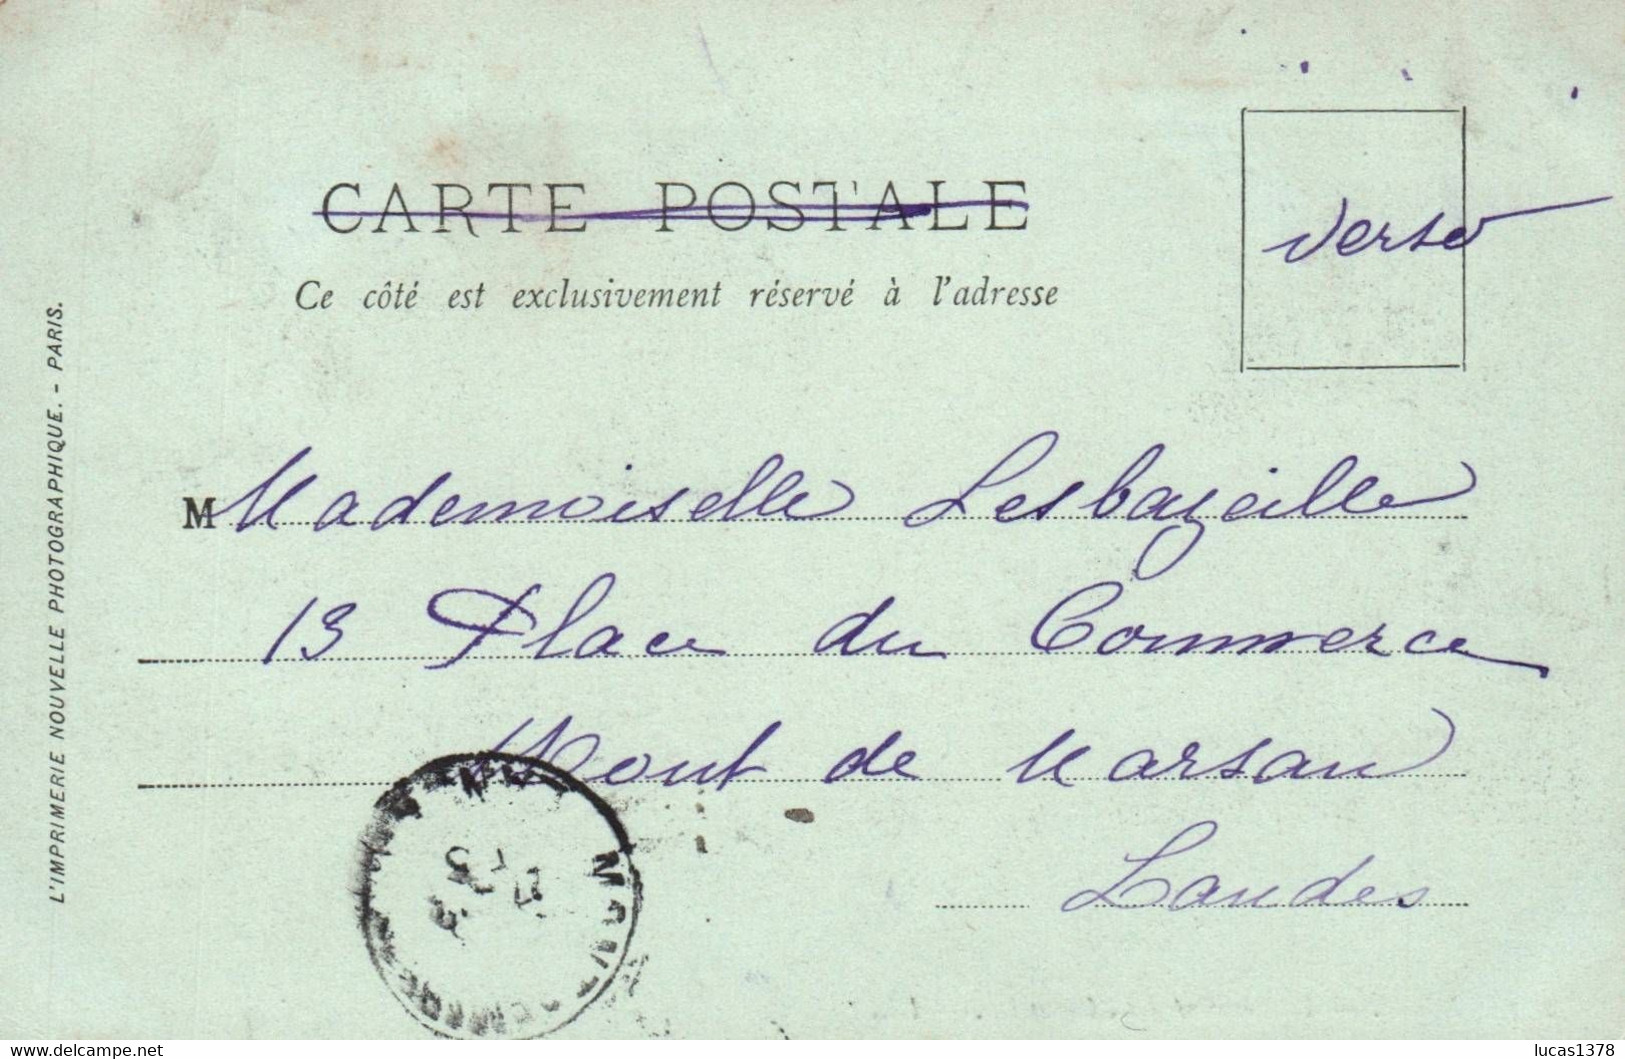 CARTE POSTALE
Ce côté est exclusivement réservé à l'adresse
verso
L'IMPRIMERIE NOUVELLE PHOTOGRAPHIQUE. - PARIS.
M Mademoiselle Lesbazeille
13 Place du Commerce
Mont de Marsan
Landes
www.delcampe.net
lucas1378